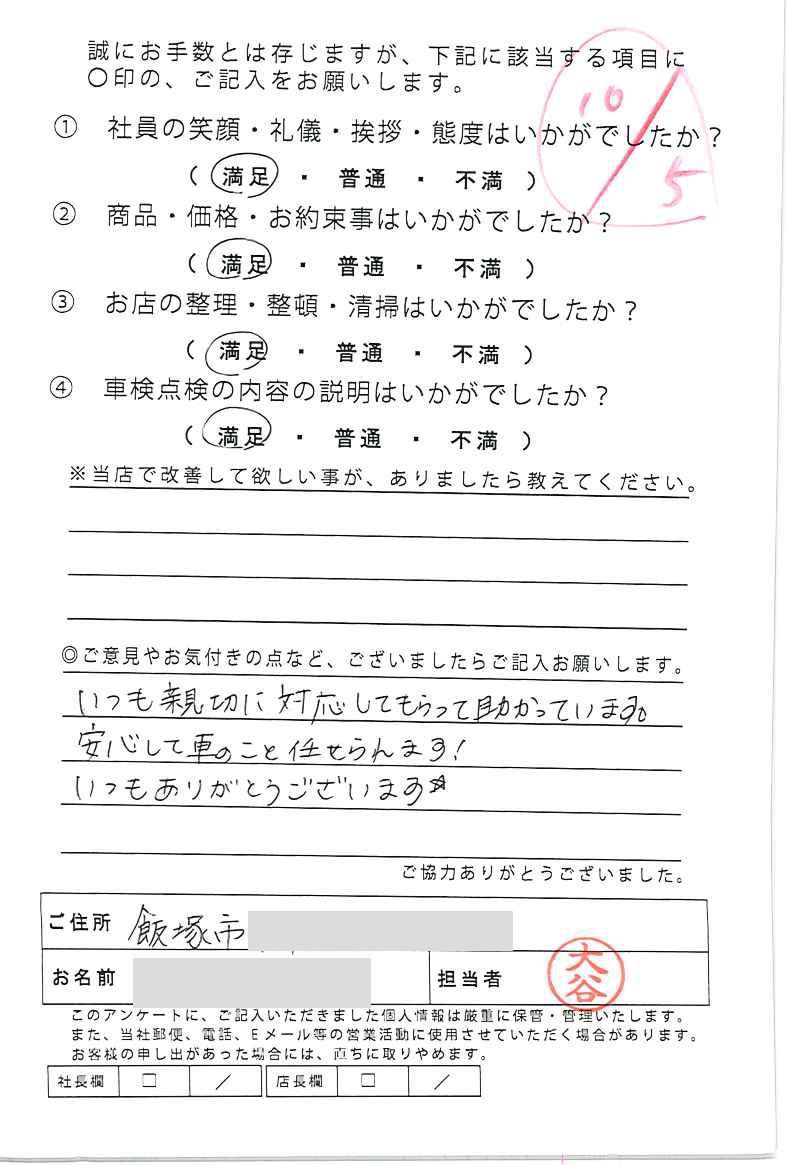 誠にお手数とは存じますが、下記に該当する項目に
〇印の、ご記入をお願いします。
10/5
① 社員の笑顔・礼儀・挨拶・態度はいかがでしたか？
( 満足 ・ 普通 ・ 不満 )
② 商品・価格・お約束事はいかがでしたか？
( 満足 ・ 普通 ・ 不満 )
③ お店の整理・整頓・清掃はいかがでしたか？
( 満足 ・ 普通 ・ 不満 )
④ 車検点検の内容の説明はいかがでしたか？
( 満足 ・ 普通 ・ 不満 )
※当店で改善して欲しい事が、ありましたら教えてください。
◎ご意見やお気付きの点など、ございましたらご記入お願いします。
いつも親切に対応してもらって助かっています。
安心して車のこと任せられます!
いつもありがとうございます☆
ご協力ありがとうございました。
ご住所 飯塚市
お名前 担当者 大谷
このアンケートに、ご記入いただきました個人情報は厳重に保管・管理いたします。
また、当社郵便、電話、Eメール等の営業活動に使用させていただく場合があります。
お客様の申し出があった場合には、直ちに取りやめます。
社長欄 □ ／ 店長欄 □ ／